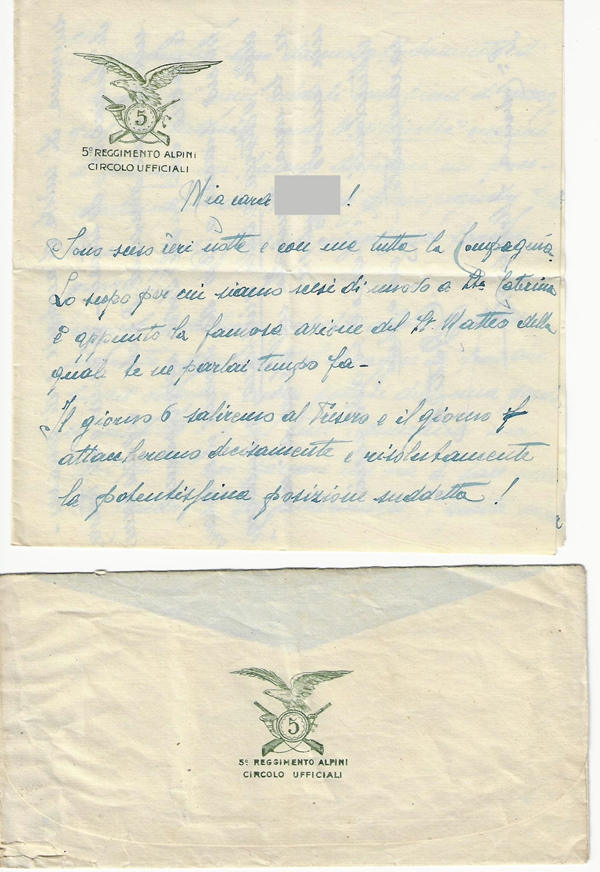 5
5º REGGIMENTO ALPINI
CIRCOLO UFFICIALI
Mia cara !
Sono sceso ieri notte e con me tutta la Compagnia.
Lo scopo per cui siamo scesi di nuovo a Sta Caterina
è appunto la famosa azione del St. Matteo della
quale te ne parlai tempo fa -
Il giorno 6 saliremo al Tresero e il giorno
attaccheremo decisamente e risolutamente
la potentissima posizione suddetta !
5
5º REGGIMENTO ALPINI
CIRCOLO UFFICIALI